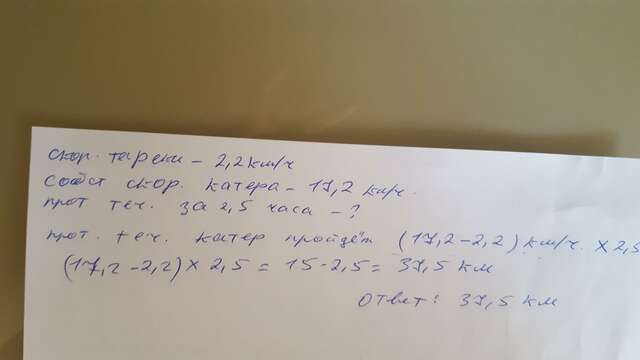 скор. тареки - 2,2 км/ч
собст скор. катера - 17,2 км/ч.
прот теч. за 2,5 часа - ?
прот. теч. катер пройдёт (17,2-2,2) км/ч. × 2,5
(17,2-2,2) × 2,5 = 15·2,5 = 37,5 км
Ответ: 37,5 км